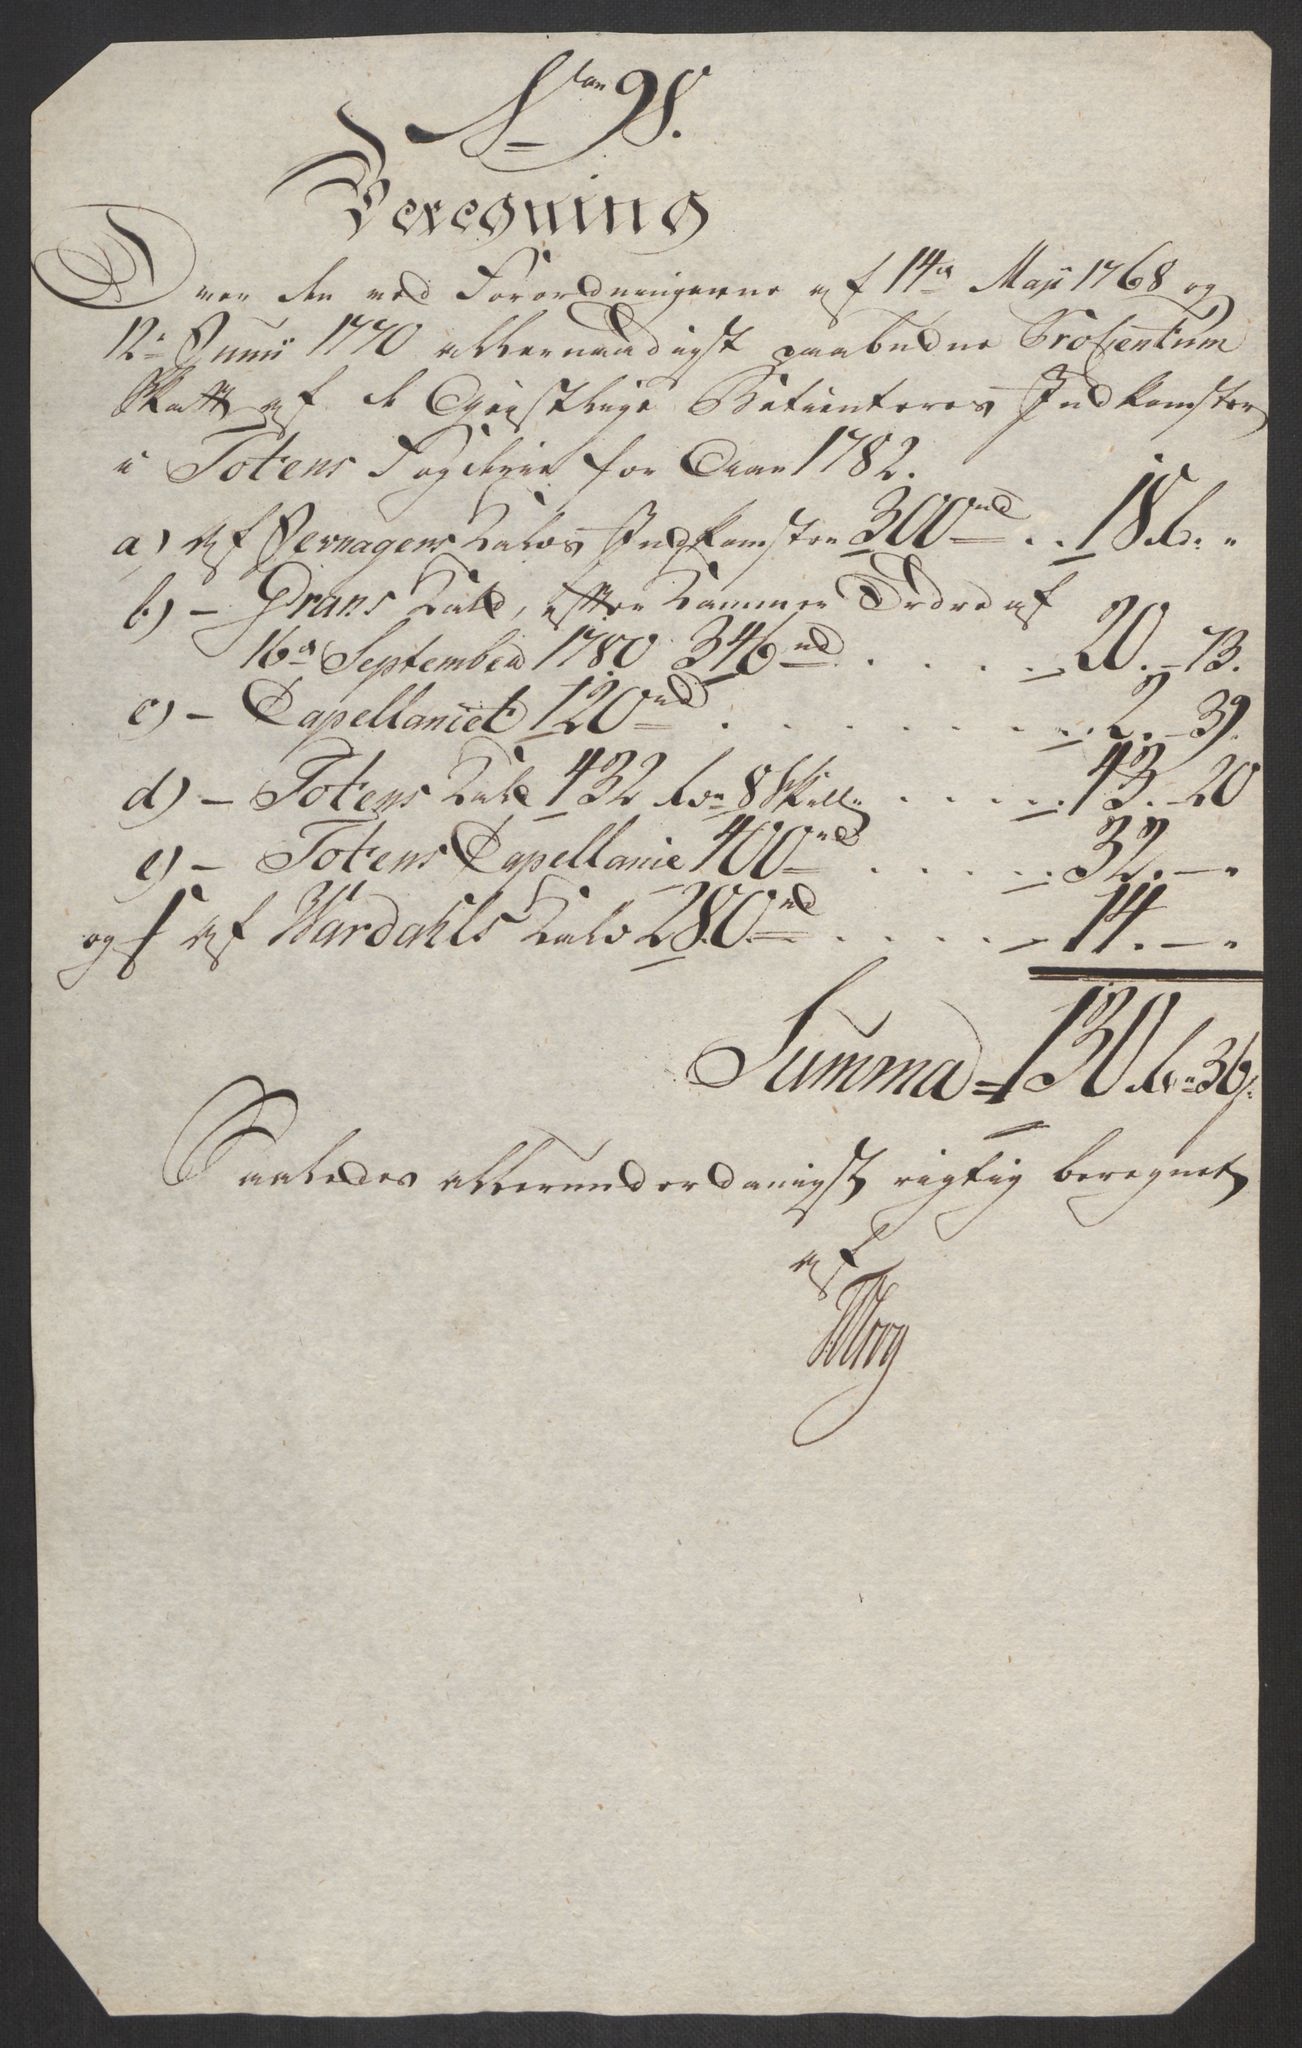 No 98.
Beregning
Over den ved Forordningerne af 14de Maji 1768 og
12te Junii 1770 allernaadigst paabudne Procentum
Skatt af de Geistlige Betienteres Indkomster
i Totens Fogderie for Aar 1782.
a) af Jevnagers Kalds Indkomster 300 rd .. 18 rd. "
b) – Grans Kald, efter Kammer Ordre af
16de September 1780 346 rd . . . . . 20. – 73.
c) – Capellaniet 120 rd . . . . . . . 2. – 39.
d) – Totens Kald 432 rdr 88 Skill. . . . . . 43. – 20
e) – Totens Capellanie 400 rd . . . . . 32. – "
og f af Wardahls Kald 280 rd . . . . . 14. – "
Summa 130 rdr 36 s.
Saaledes allerunderdanigst rigtig beregnet
af